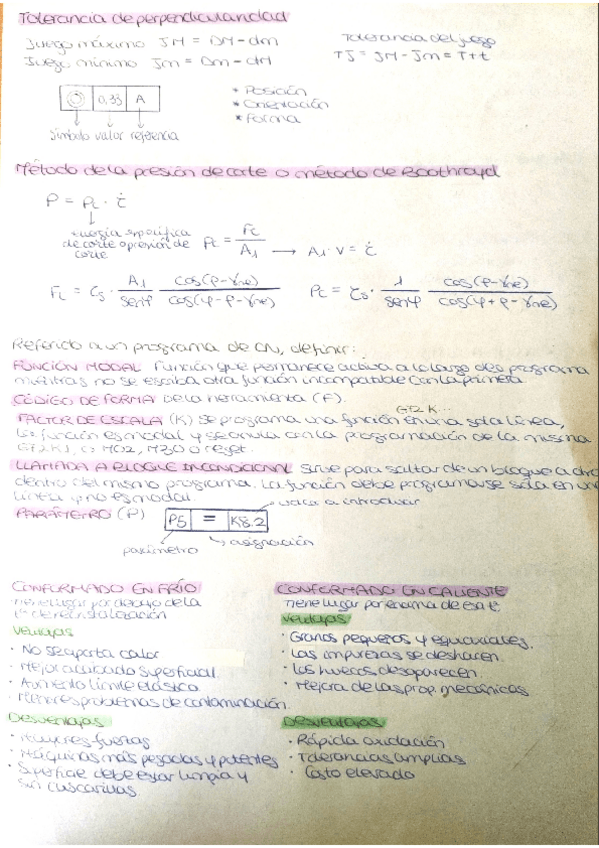 Tolerancia de perpendicularidad
Juego máximo JM = DM - dm
Juego mínimo Jm = Dm - dM
Tolerancia del juego
TJ = JM - Jm = T + t
◎ 0,33 A
símbolo valor referencia
* Posición
* Orientación
* Forma
Método de la presión de corte o método de Boothroyd
P = Pc · ċ
energía específica
de corte o presión de
corte
Pc = Fc / A1 → A1 · V = ċ
Fc = ζs · A1 / senφ · cos(ρ-γne) / cos(φ-ρ-γne)
Pc = ζs · 1 / senφ · cos(ρ-γne) / cos(φ+ρ-γne)
Referido a un programa de CN, definir:
FUNCIÓN MODAL Función que permanece activa a lo largo de programa
mientras no se escriba otra función incompatible con la primera.
CÓDIGO DE FORMA De la herramienta (F).
G72 K...
FACTOR DE ESCALA (K) Se programa una función en una sola línea,
la función es modal y se anula con la programación de la misma
G72 K1, o M02, M30 o reset.
LLAMADA A BLOQUE INCONDICIONAL Sirve para saltar de un bloque a otro
dentro del mismo programa. La función debe programarse sola en una
línea y no es modal.
valor a introducir
PARÁMETRO (P) P5 = K8.2
parámetro asignación
CONFORMADO EN FRÍO
Tiene lugar por debajo de la
tª de recristalización
Ventajas
• No se aporta calor
• Mejor acabado superficial.
• Aumento límite elástico
• Menores problemas de contaminación.
Desventajas
• Mayores fuerzas
• Máquinas más pesadas y potentes
• Superficie debe estar limpia y
sin cascarillas
CONFORMADO EN CALIENTE
Tiene lugar por encima de esa tª
Ventajas
• Granos pequeños y equiaxiales.
• Las impurezas se deshacen.
• Los huecos desaparecen.
• Mejora de las prop. mecánicas
Desventajas
• Rápida oxidación
• Tolerancias amplias
• Costo elevado